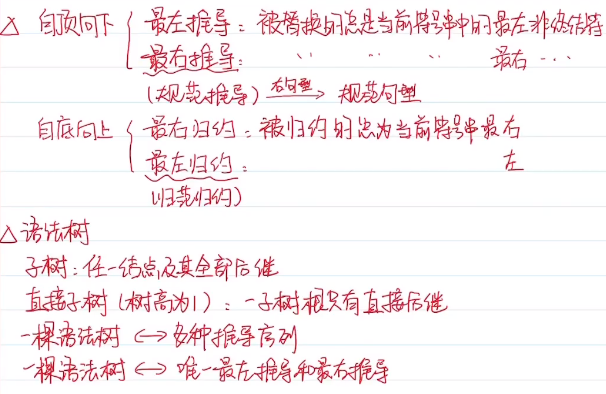 △ 自顶向下 { 最左推导：被替换的总是当前符号串中的最左非终结符
最右推导： 〃 〃 〃 最右 …
(规范推导) 右句型→ 规范句型
自底向上 { 最右归约：被归约的总为当前符号串最右
最左归约： 左
(规范归约)
△ 语法树
子树：任一结点及其全部后继
直接子树 (树高为1)：一子树根只有直接后继
一棵语法树 ↔ 多种推导序列
一棵语法树 ↔ 唯一最左推导和最右推导